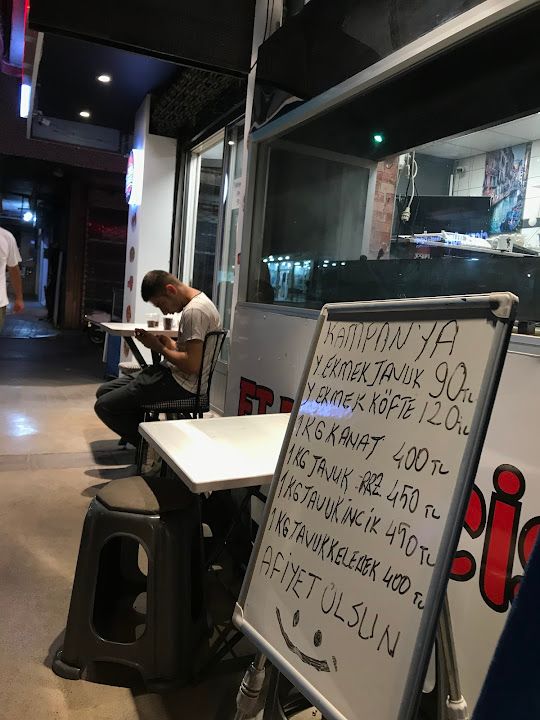 KAMPANYA
Y. EKMEK TAVUK 90TL
Y EKMEK KÖFTE 120TL
1 KG KANAT 400TL
1 KG TAVUK 450TL
1 KG TAVUK İNCİK 450TL
1 KG TAVUK KELEBEK 400TL
AFİYET OLSUN
ET